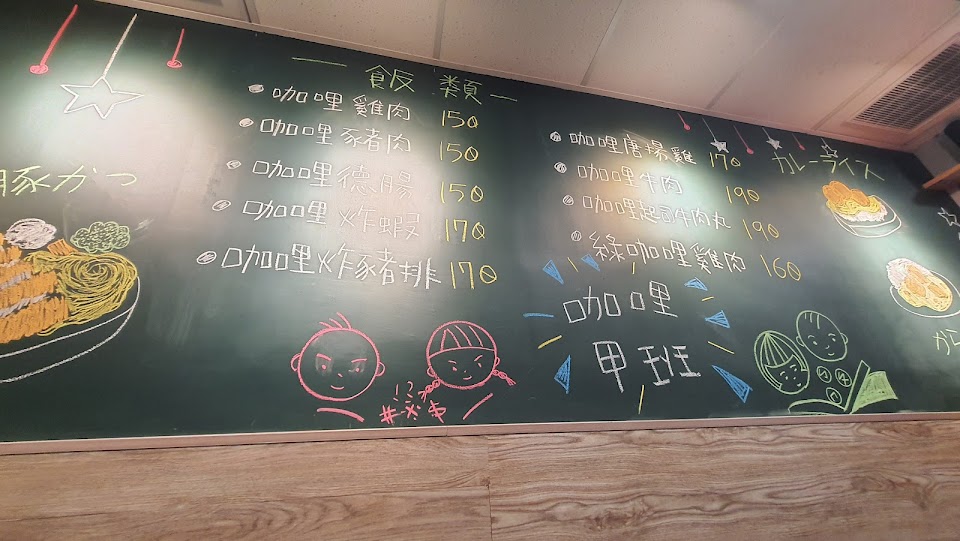 飯類
咖哩雞肉 150
咖哩豬肉 150
咖哩德腸 150
咖哩炸蝦 170
咖哩炸豬排 170
咖哩唐揚雞 170
咖哩牛肉 190
咖哩起司牛肉丸 190
綠咖哩雞肉 160
咖哩
甲班
豚かつ
カレーライス
から
!?